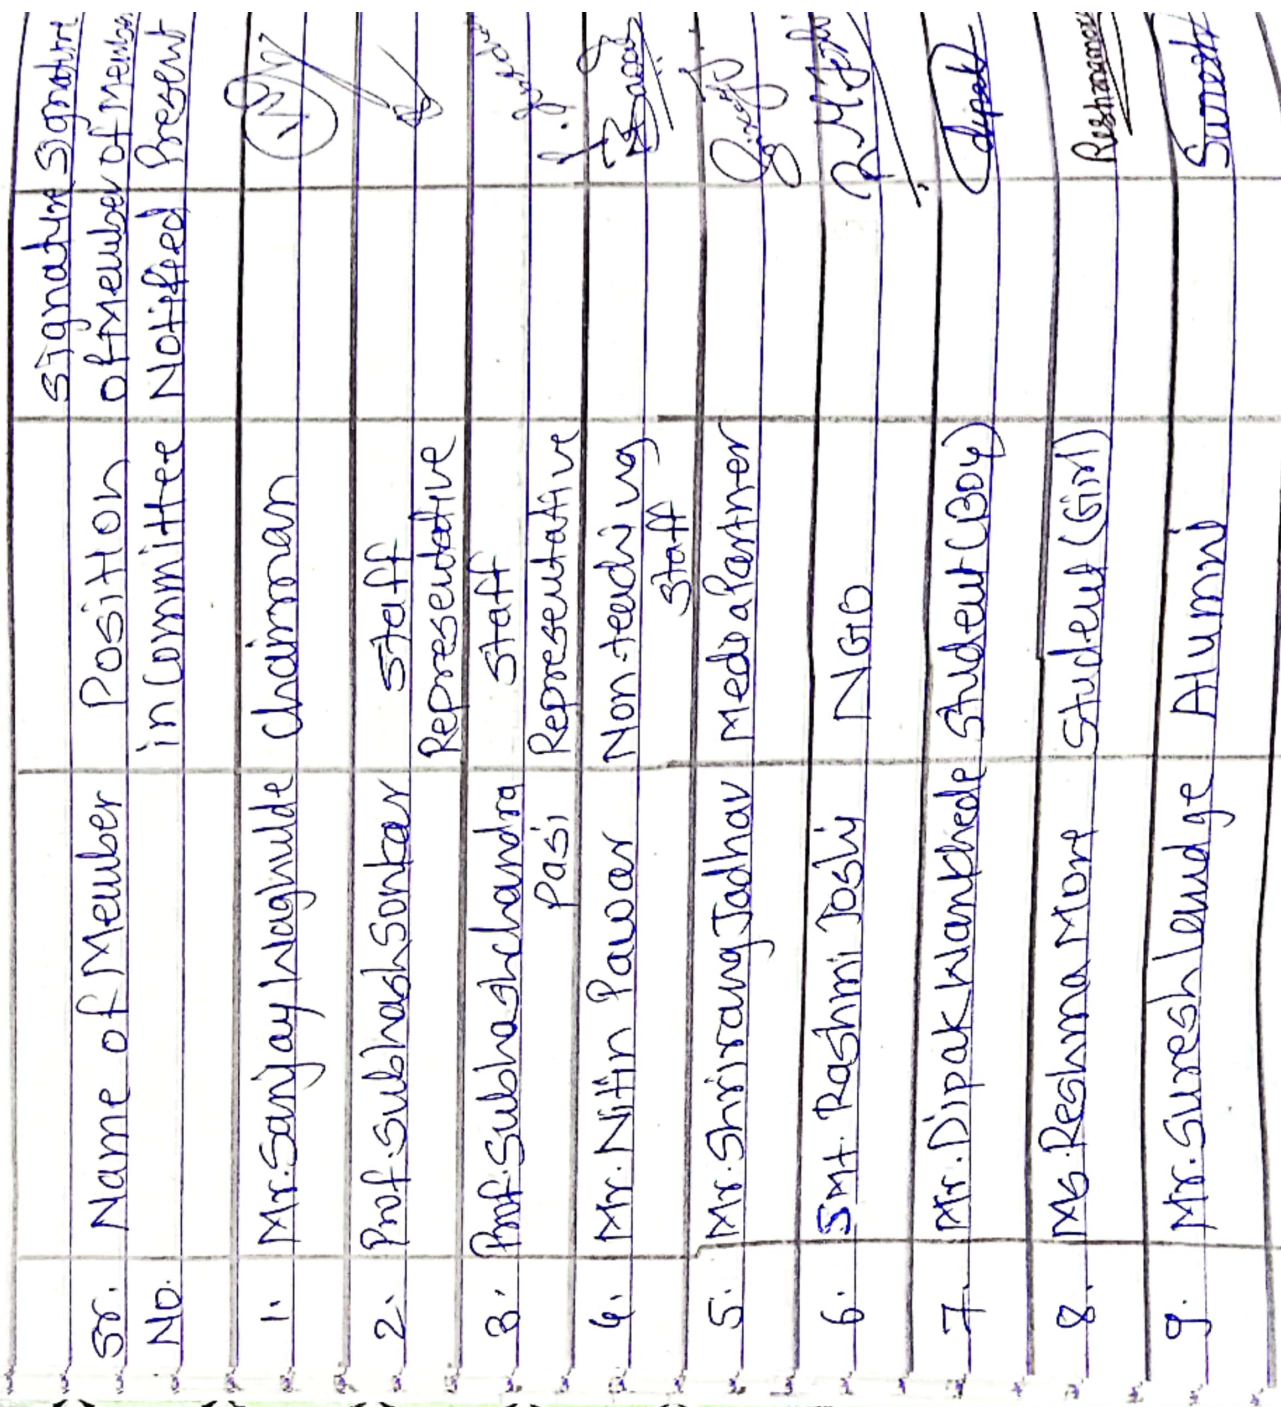 Sr. Name of Member Position Signature Signature
No. in Committee of Member of Member
Notified Present
1. Mr. Sanjay Waghulde Chairman
2. Prof. Subhash Sonkar Staff
Representative
3. Prof. Subhashchandra Staff
Pasi Representative
4. Mr. Nitin Pawar Non-teaching
Staff
5. Mr. Shrirang Jadhav Media Partner
6. Smt. Rashmi Joshi NGO R.M.Joshi
7. Mr. Dipak Wankhede Student (Boy) dipak
8. Ms. Reshma More Student (Girl)
9. Mr. Suresh landge Alumni Suresh